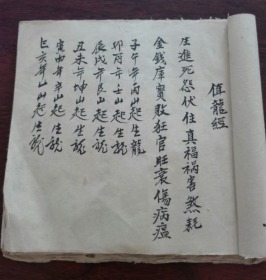 值龍經
生進死怨伏住真福禍害煞耗
金錢庫寶敗狂官旺衰傷病瘟
子午年丙山起生龍
卯酉年壬山起生龍
辰戌年艮山起生龍
丑未年坤山起生龍
寅申年辛山起生龍
巳亥年山起生龍